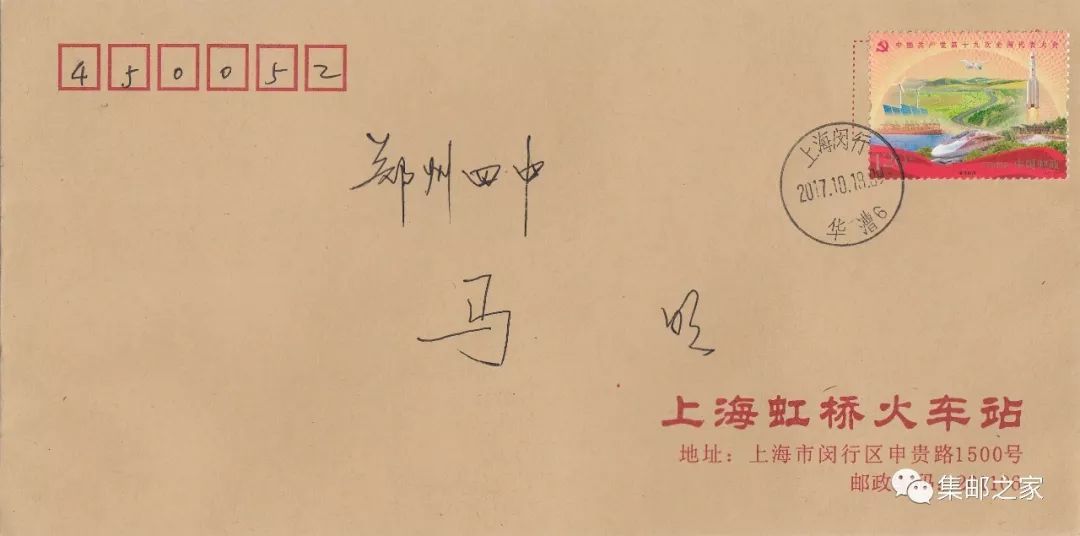 450052
中国共产党第十九次全国代表大会
中国邮政
上海闵行
2017.10.18.09
华漕
郑州四中
马
上海虹桥火车站
地址：上海市闵行区申贵路1500号
邮政
集邮之家